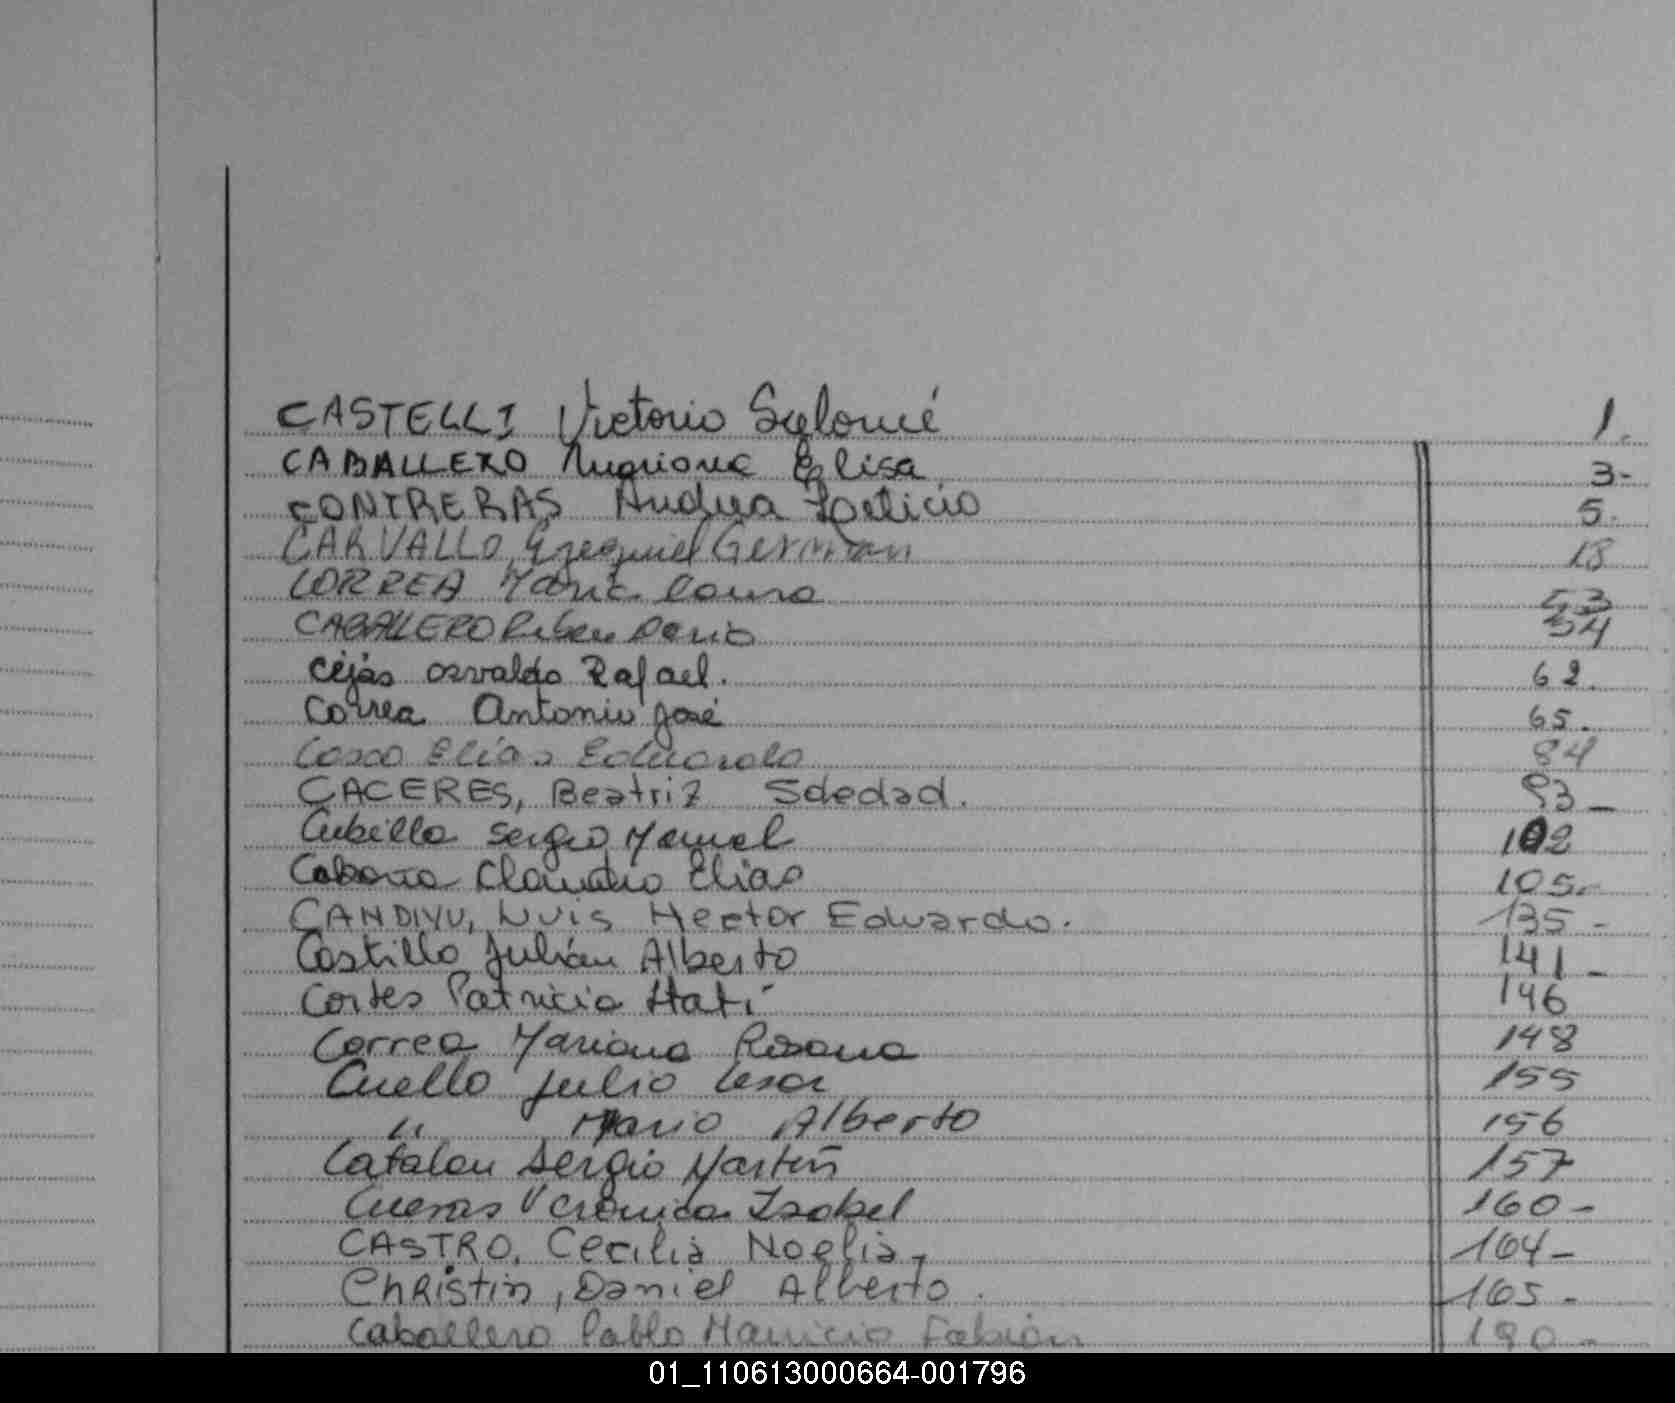 CASTELLI Victorio Salomé 1.
CABALLERO Mariana Elisa 3-
CONTRERAS Andrea Leticia 5.
CARVALLO, Ezequiel German 18
CORREA Maria Laura 53
CABALLERO Ruben Dario 54
Cejas Osvaldo Rafael. 62.
Correa Antonio José 65.
Elias Eduardo 84
CACERES, Beatriz Soledad. 93-
Cubilla Sergio Manuel 102
Claudio Elias 105.-
CANDIYU, Luis Hector Eduardo. 135-
Castillo Julián Alberto 141-
Cortes Patricia Itatí 146
Correa Mariana Rosana 148
Cuello Julio Cesar 155
" Mario Alberto 156
Catalan Sergio Martin 157
Cuevas Veronica Isabel 160-
CASTRO, Cecilia Noelia- 164-
Christin, Daniel Alberto. 165-
Caballero Pablo Mauricio Fabián 190-
01_110613000664-001796